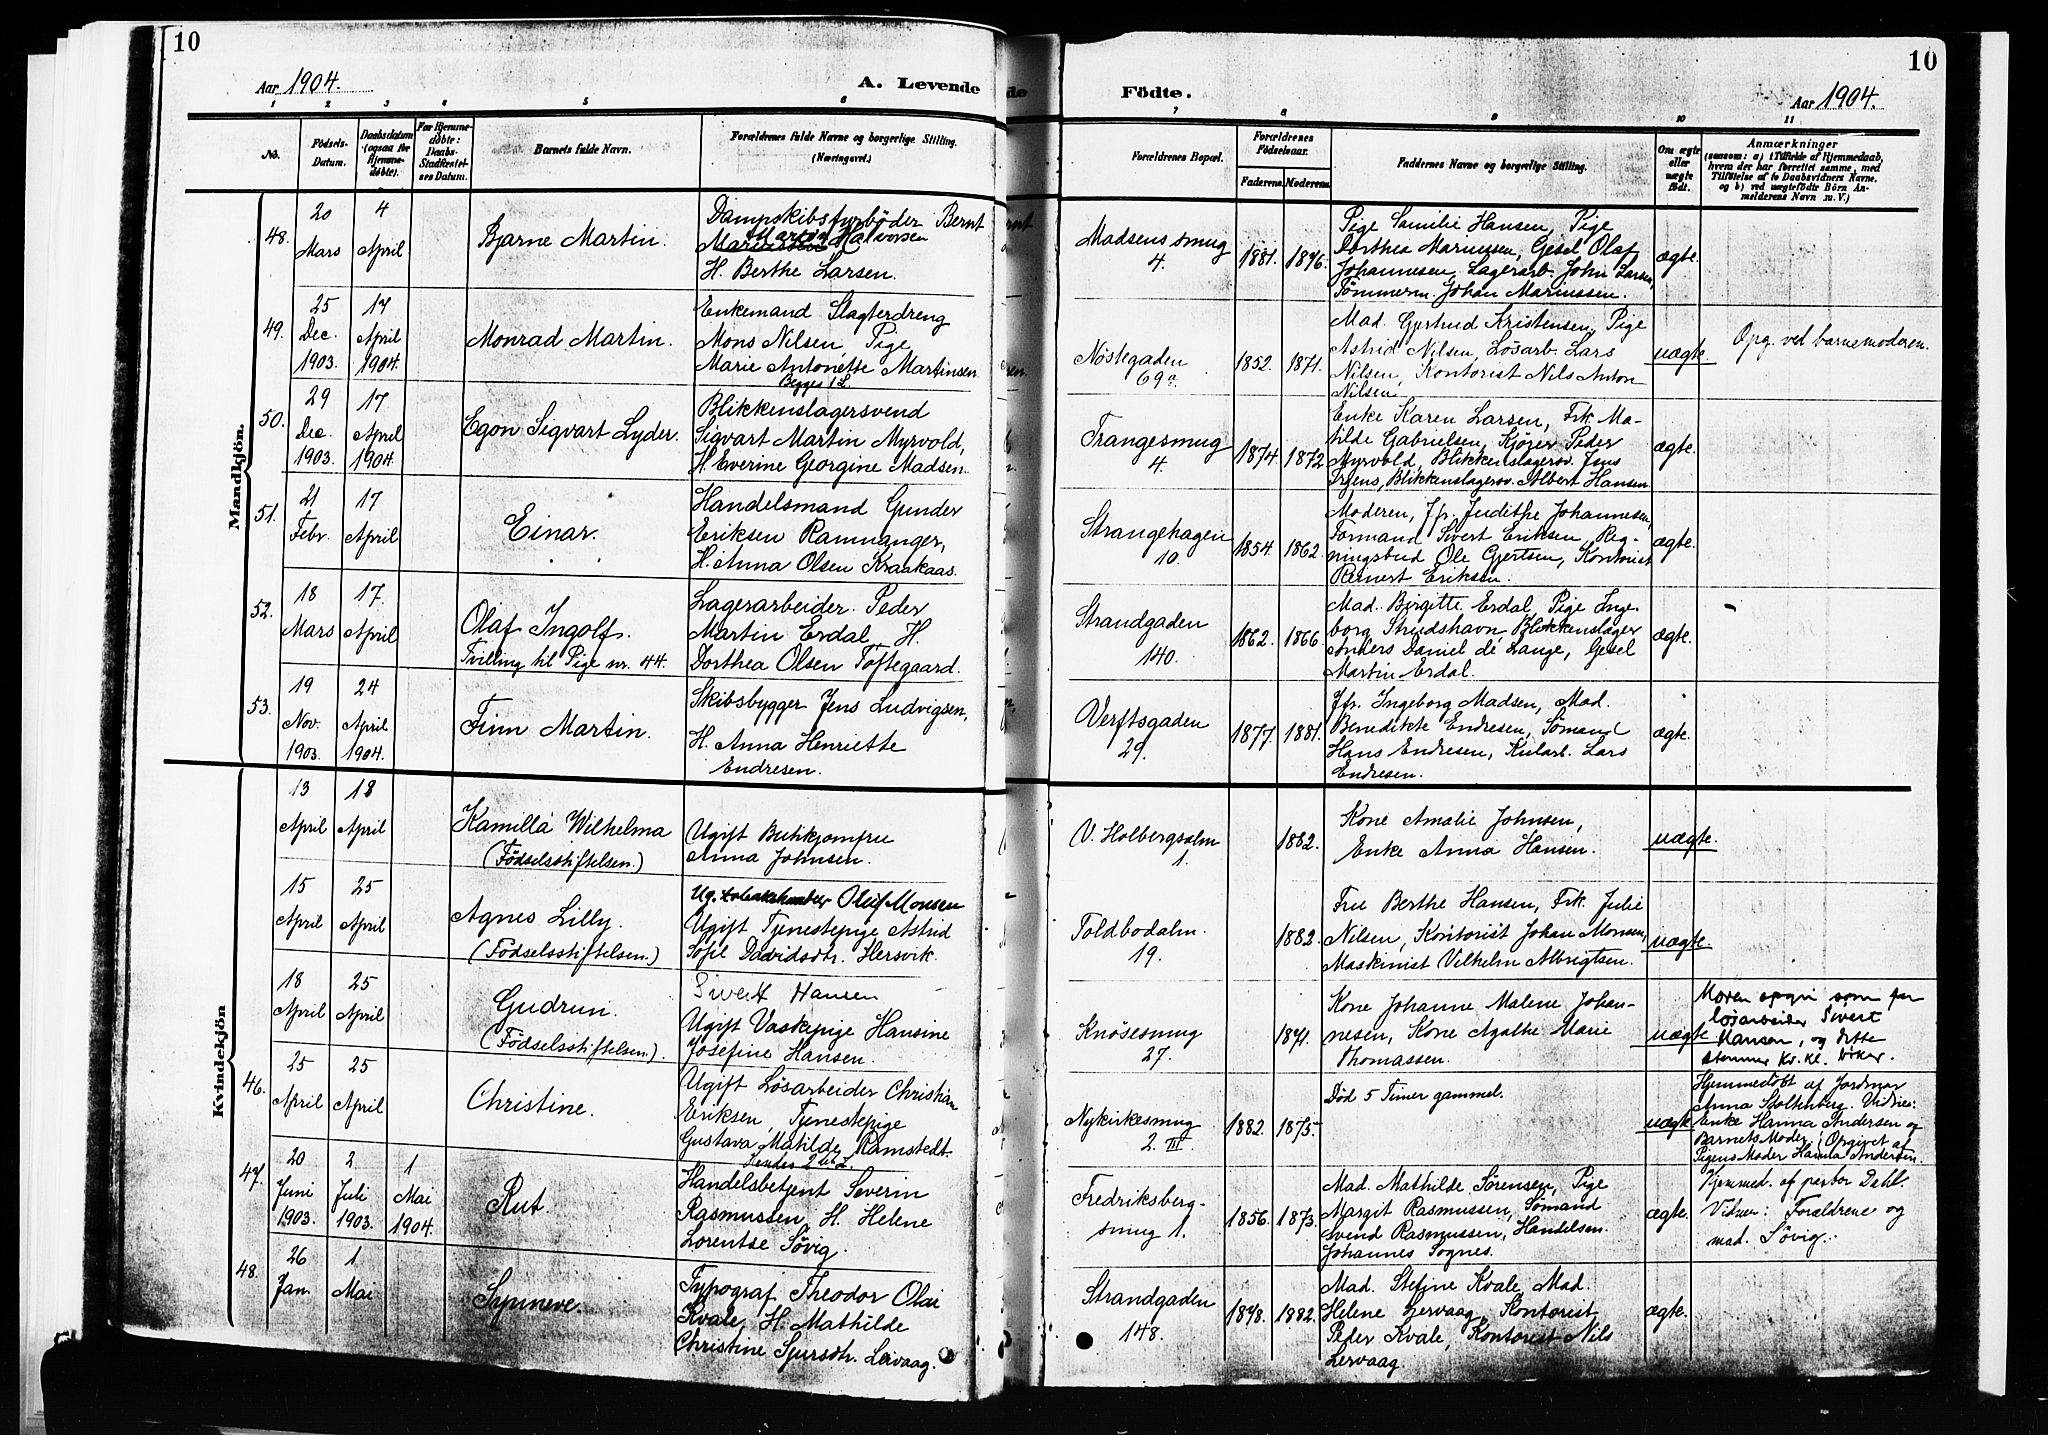 10
Aar 1904.
A. Levende
1 2 3 4 5 6
No.
Födsels-
Datum.
Daabsdatum
(ogsaa for
Hjemme-
døbte).
For Hjemme-
døbte:
Daabs-
Stadfæstel-
ses Datum.
Barnets fulde Navn.
Forældrenes fulde Navne og borgerlige Stilling.
(Næringsvei.)
Mandkjön.
48.
20
Mars
4
April
Bjarne Martin.
Dampskibsfyrbøder Bernt
Martin Halvorsen
H. Berthe Larsen.
49.
25
Dec.
1903.
17
April
1904.
Monrad Martin.
Enkemand Slagterdreng
Mons Nilsen, Pige
Marie Antonette Martinsen
Begges 1ste L.
50.
29
Dec.
1903.
17
April
1904.
Egon Sigvart Lyder.
Blikkenslagersvend
Sigvart Martin Myrvold,
H. Everine Georgine Madsen.
51.
21
Febr.
17
April
Einar.
Handelsmand Gunder
Eriksen Ramnanger,
H. Anna Olsen Kraakaas.
52.
18
Mars
17.
April
Olaf Ingolf.
Tvilling til Pige nr. 44.
Lagerarbeider Peder
Martin Erdal, H.
Dorthea Olsen Toftegaard.
53.
19
Nov.
1903.
24
April
1904.
Finn Martin.
Skibsbygger Jens Ludvigsen,
H. Anna Henriette
Endresen.
Kvindekjön
13
April
18
April
Kamilla Wilhelma
(Födselsstiftelsen.)
Ugift Butikjomfru
Anna Johnsen.
15
April
25
April
Agnes Lilly.
(Födselsstiftelsen.)
Ug. Oluf Monsen
Ugift Tjenestepige Astrid
Sofie Davidsdtr. Hersvik.
18
April
25
April
Gudrun.
(Födselsstiftelsen.)
Sivert Hansen
Ugift Vaskepige Hansine
Josefine Hansen.
46.
25
April
25
April
Christine.
Ugift Løsarbeider Christian
Eriksen, Tjenestepige
Gustava Matilde Ramstedt.
Hendes 2det L.
47.
20
Juni
1903.
2
Juli
1903.
1
Mai
1904.
Rut.
Handelsbetjent Severin
Rasmussen, H. Helene
Lorentse Søvig.
48.
26
Jan.
1
Mai
Synneve.
Typograf Theodor Olai
Kvale, H. Mathilde
Christine Sjursdtr. Lervaag.
10
Födte.
Aar 1904.
7 8 9 10 11
Forældrenes Bopæl.
Forældrenes
Födselsaar.
Faderens. Moderens.
Faddernes Navne og borgerlige Stilling.
Om ægte
eller
uægte
födt.
Anmærkninger
(saasom: a) i Tilfælde af Hjemmedaab,
hvem der har forrettet samme, med
Tilföielse af to Daabsvidners Navne,
og b) ved uægtefödte Börn An-
melderens Navn m. V.)
Madsens smug
4.
1881. 1876.
Pige Camilie Hansen, Pige
Dorthea Mariussen, Gesel Olaf
Johannesen, Lagerarb. John Larsen,
Tömmerm. Johan Mariussen.
ægte.
Nöstegaden
69a.
1852. 1871.
Mad. Gertrud Kristensen, Pige
Astrid Nilsen, Løsarb. Lars
Nilsen, Kontorist Nils Anton
Nilsen.
uægte.
Opg. ved barnemoderen.
Trangesmug
4.
1874. 1872.
Enke Karen Larsen, Frk. Ma-
tilde Gabrielsen, Kjører Peder
Myrvold, Blikkenslagersv. Jens
Irgens, Blikkenslagersv. Albert Hansen
ægte.
Strangehagen
10.
1854. 1862.
Moderen, Jfr. Judithe Johannesen,
Formand Sivert Eriksen, Reg-
ningsbud Ole Gjertsen, Kontorist
Reinert Eriksen.
ægte.
Strandgaden
140.
1862. 1866.
Mad. Birgitte Erdal, Pige Inge-
borg Strudshavn, Blikkenslager
Anders Daniel de Lange, Gesel
Martin Erdal.
ægte.
Verftsgaden
29.
1877. 1881.
Jfr. Ingeborg Madsen, Mad.
Benedikte Endresen, Sømand
Hans Endresen, Kularb. Lars
Endresen.
ægte.
V. Holbergsalm
1.
1882.
Kone Amalie Johnsen,
Enke Anna Hansen.
uægte.
Toldbodalm.
19.
1882.
Frue Berthe Hansen, Frk. Julie
Nilsen, Kontorist Johan Monsen,
Maskinist Vilhelm Albrigtsen.
uægte.
Knösesmug
27.
1871.
Kone Johanne Malene Johan-
nesen, Kone Agathe Marie
Thomassen.
uægte
Moren opgir som far
løsarbeider Sivert
Hansen, og dette
stemmer kr. kl. böker.
Nykirkesmug
2. III.
1882. 1875.
Död 5 Timer gammel.
uægte
Hjemmedöbt af Jordmor
Anna Stoltenberg. Vidnes:
Enke Hanna Andersen og
Barnets Moder. Opgivet af
Pigens Moder Hanna Andersen.
Fredriksberg-
smug 1.
1856. 1873.
Mad. Mathilde Sörensen, Pige
Margit Rasmussen, Sømand
Svend Rasmussen, Handelsm.
Johannes Sognes.
ægte.
Hjemmed. af pastor Dahl.
Vidner: Forældrene og
mad. Søvig.
Strandgaden
148.
1878. 1882.
Mad. Stefine Kvale, Mad.
Helene Lervaag, Kontorist
Peder Kvale, Kontorist Nils
Lervaag.
ægte.